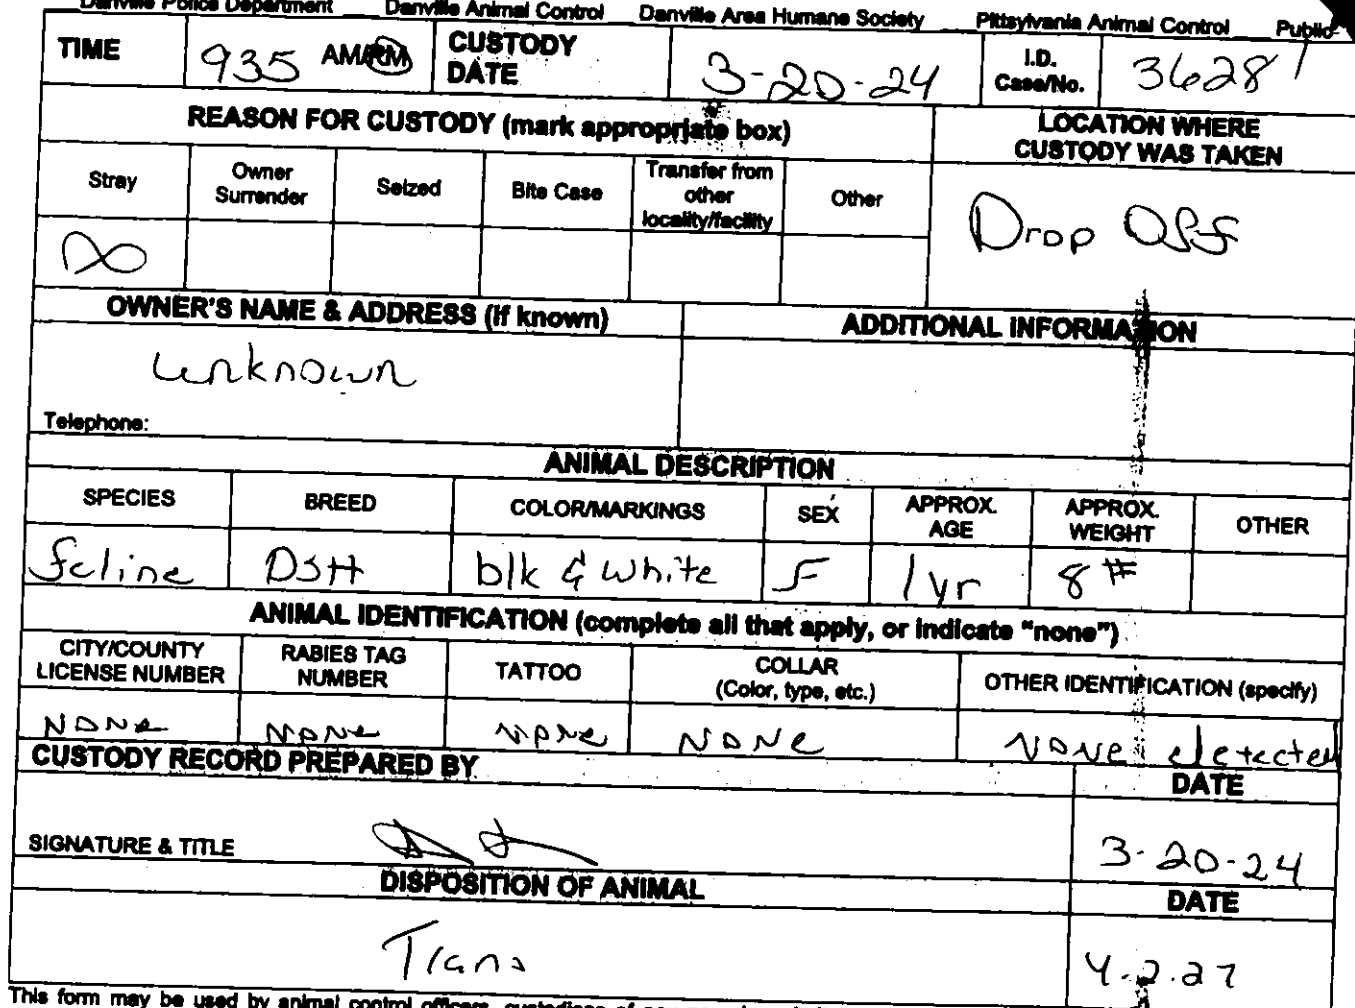 Danville Police Department Danville Animal Control Danville Area Humane Society Pittsylvania Animal Control Public
TIME 935 AM/PM CUSTODY DATE 3-20-24 I.D. Case/No. 36281
REASON FOR CUSTODY (mark appropriate box) LOCATION WHERE CUSTODY WAS TAKEN
Stray Owner Surrender Seized Bite Case Transfer from other locality/facility Other
Drop Off
OWNER'S NAME & ADDRESS (if known) ADDITIONAL INFORMATION
unknown
Telephone:
ANIMAL DESCRIPTION
SPECIES BREED COLOR/MARKINGS SEX APPROX. AGE APPROX. WEIGHT OTHER
feline DSH blk & white F 1 yr 8 #
ANIMAL IDENTIFICATION (complete all that apply, or indicate "none")
CITY/COUNTY LICENSE NUMBER RABIES TAG NUMBER TATTOO COLLAR (Color, type, etc.) OTHER IDENTIFICATION (specify)
None None None None None detected
CUSTODY RECORD PREPARED BY DATE
SIGNATURE & TITLE 3-20-24
DISPOSITION OF ANIMAL DATE
Trans
This form may be used by animal control officers, custodians of